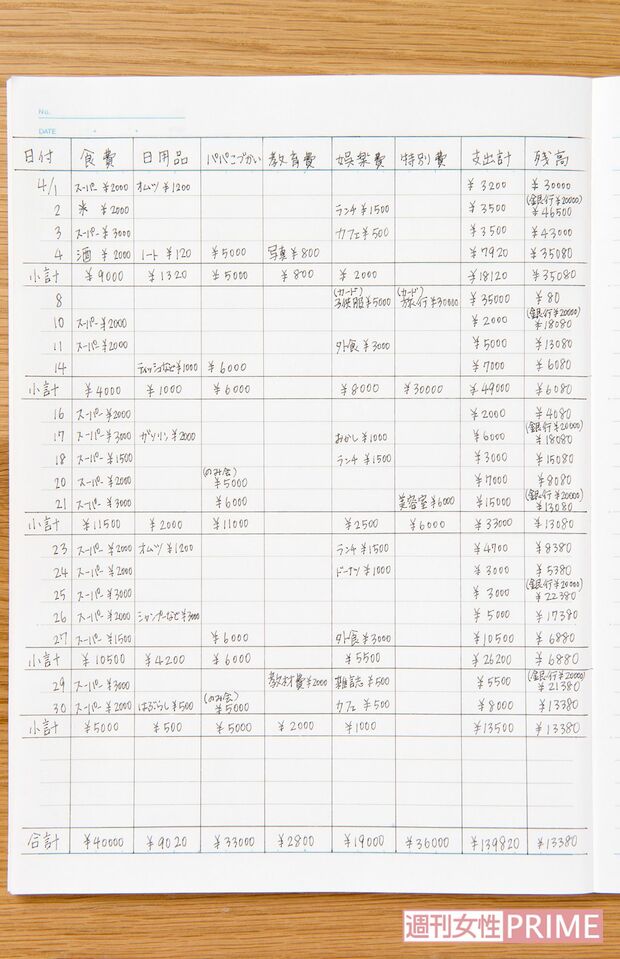 No.
DATE
日付 食費 日用品 パパこづかい 教育費 娯楽費 特別費 支出計 残高
4/1 スーパー ¥2000 オムツ ¥1200 ¥3200 ¥30000
2 米 ¥2000 ランチ ¥1500 ¥3500 (銀行¥20000) ¥46500
3 スーパー ¥3000 カフェ ¥500 ¥3500 ¥43000
4 酒 ¥2000 ノート ¥120 ¥5000 写真 ¥800 ¥7920 ¥35080
小計 ¥9000 ¥1320 ¥5000 ¥800 ¥2000 ¥18120 ¥35080
8 (カード) 子供服 ¥5000 (カード) 旅行 ¥30000 ¥35000 ¥80
10 スーパー ¥2000 ¥2000 (銀行¥20000) ¥18080
11 スーパー ¥2000 外食 ¥3000 ¥5000 ¥13080
14 ティッシュなど ¥1000 ¥6000 ¥7000 ¥6080
小計 ¥4000 ¥1000 ¥6000 ¥8000 ¥30000 ¥49000 ¥6080
16 スーパー ¥2000 ¥2000 ¥4080
17 スーパー ¥3000 ガソリン ¥2000 おかし ¥1000 ¥6000 (銀行¥20000) ¥18080
18 スーパー ¥1500 ランチ ¥1500 ¥3000 ¥15080
20 スーパー ¥2000 (のみ会) ¥5000 ¥7000 ¥8080
21 スーパー ¥3000 ¥6000 美容室 ¥6000 ¥15000 (銀行¥20000) ¥13080
小計 ¥11500 ¥2000 ¥11000 ¥2500 ¥6000 ¥33000 ¥13080
23 スーパー ¥2000 オムツ ¥1200 ランチ ¥1500 ¥4700 ¥8380
24 スーパー ¥2000 ドーナツ ¥1000 ¥3000 ¥5380
25 スーパー ¥3000 ¥3000 (銀行¥20000) ¥22380
26 スーパー ¥2000 シャンプーなど ¥3000 ¥5000 ¥17380
27 スーパー ¥1500 ¥6000 外食 ¥3000 ¥10500 ¥6880
小計 ¥10500 ¥4200 ¥6000 ¥5500 ¥26200 ¥6880
29 スーパー ¥3000 教材費 ¥2000 雑誌 ¥500 ¥5500 (銀行¥20000) ¥21380
30 スーパー ¥2000 はぶらし ¥500 (のみ会) ¥5000 カフェ ¥500 ¥8000 ¥13380
小計 ¥5000 ¥500 ¥5000 ¥2000 ¥1000 ¥13500 ¥13380
合計 ¥40000 ¥9020 ¥33000 ¥2800 ¥19000 ¥36000 ¥139820 ¥13380
週刊女性PRIME